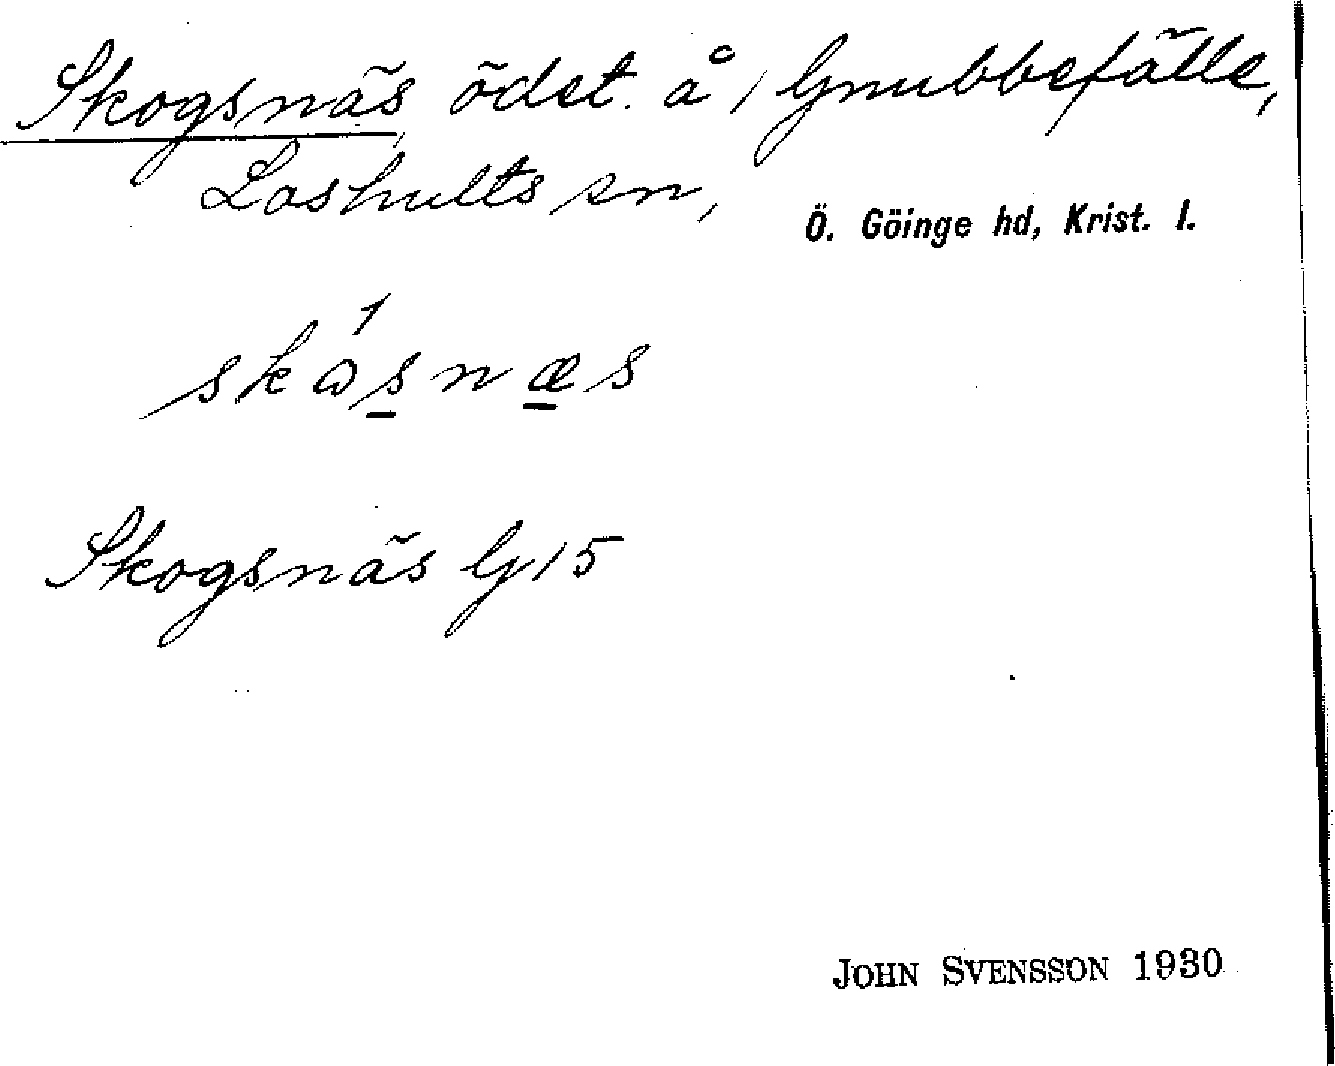 Skogsnäs ödet. å 1 Gnubbefälle,
Loshults sn, Ö. Göinge hd, Krist. l.
skɷ́snæs
Skogsnäs G15
JOHN SVENSSON 1930